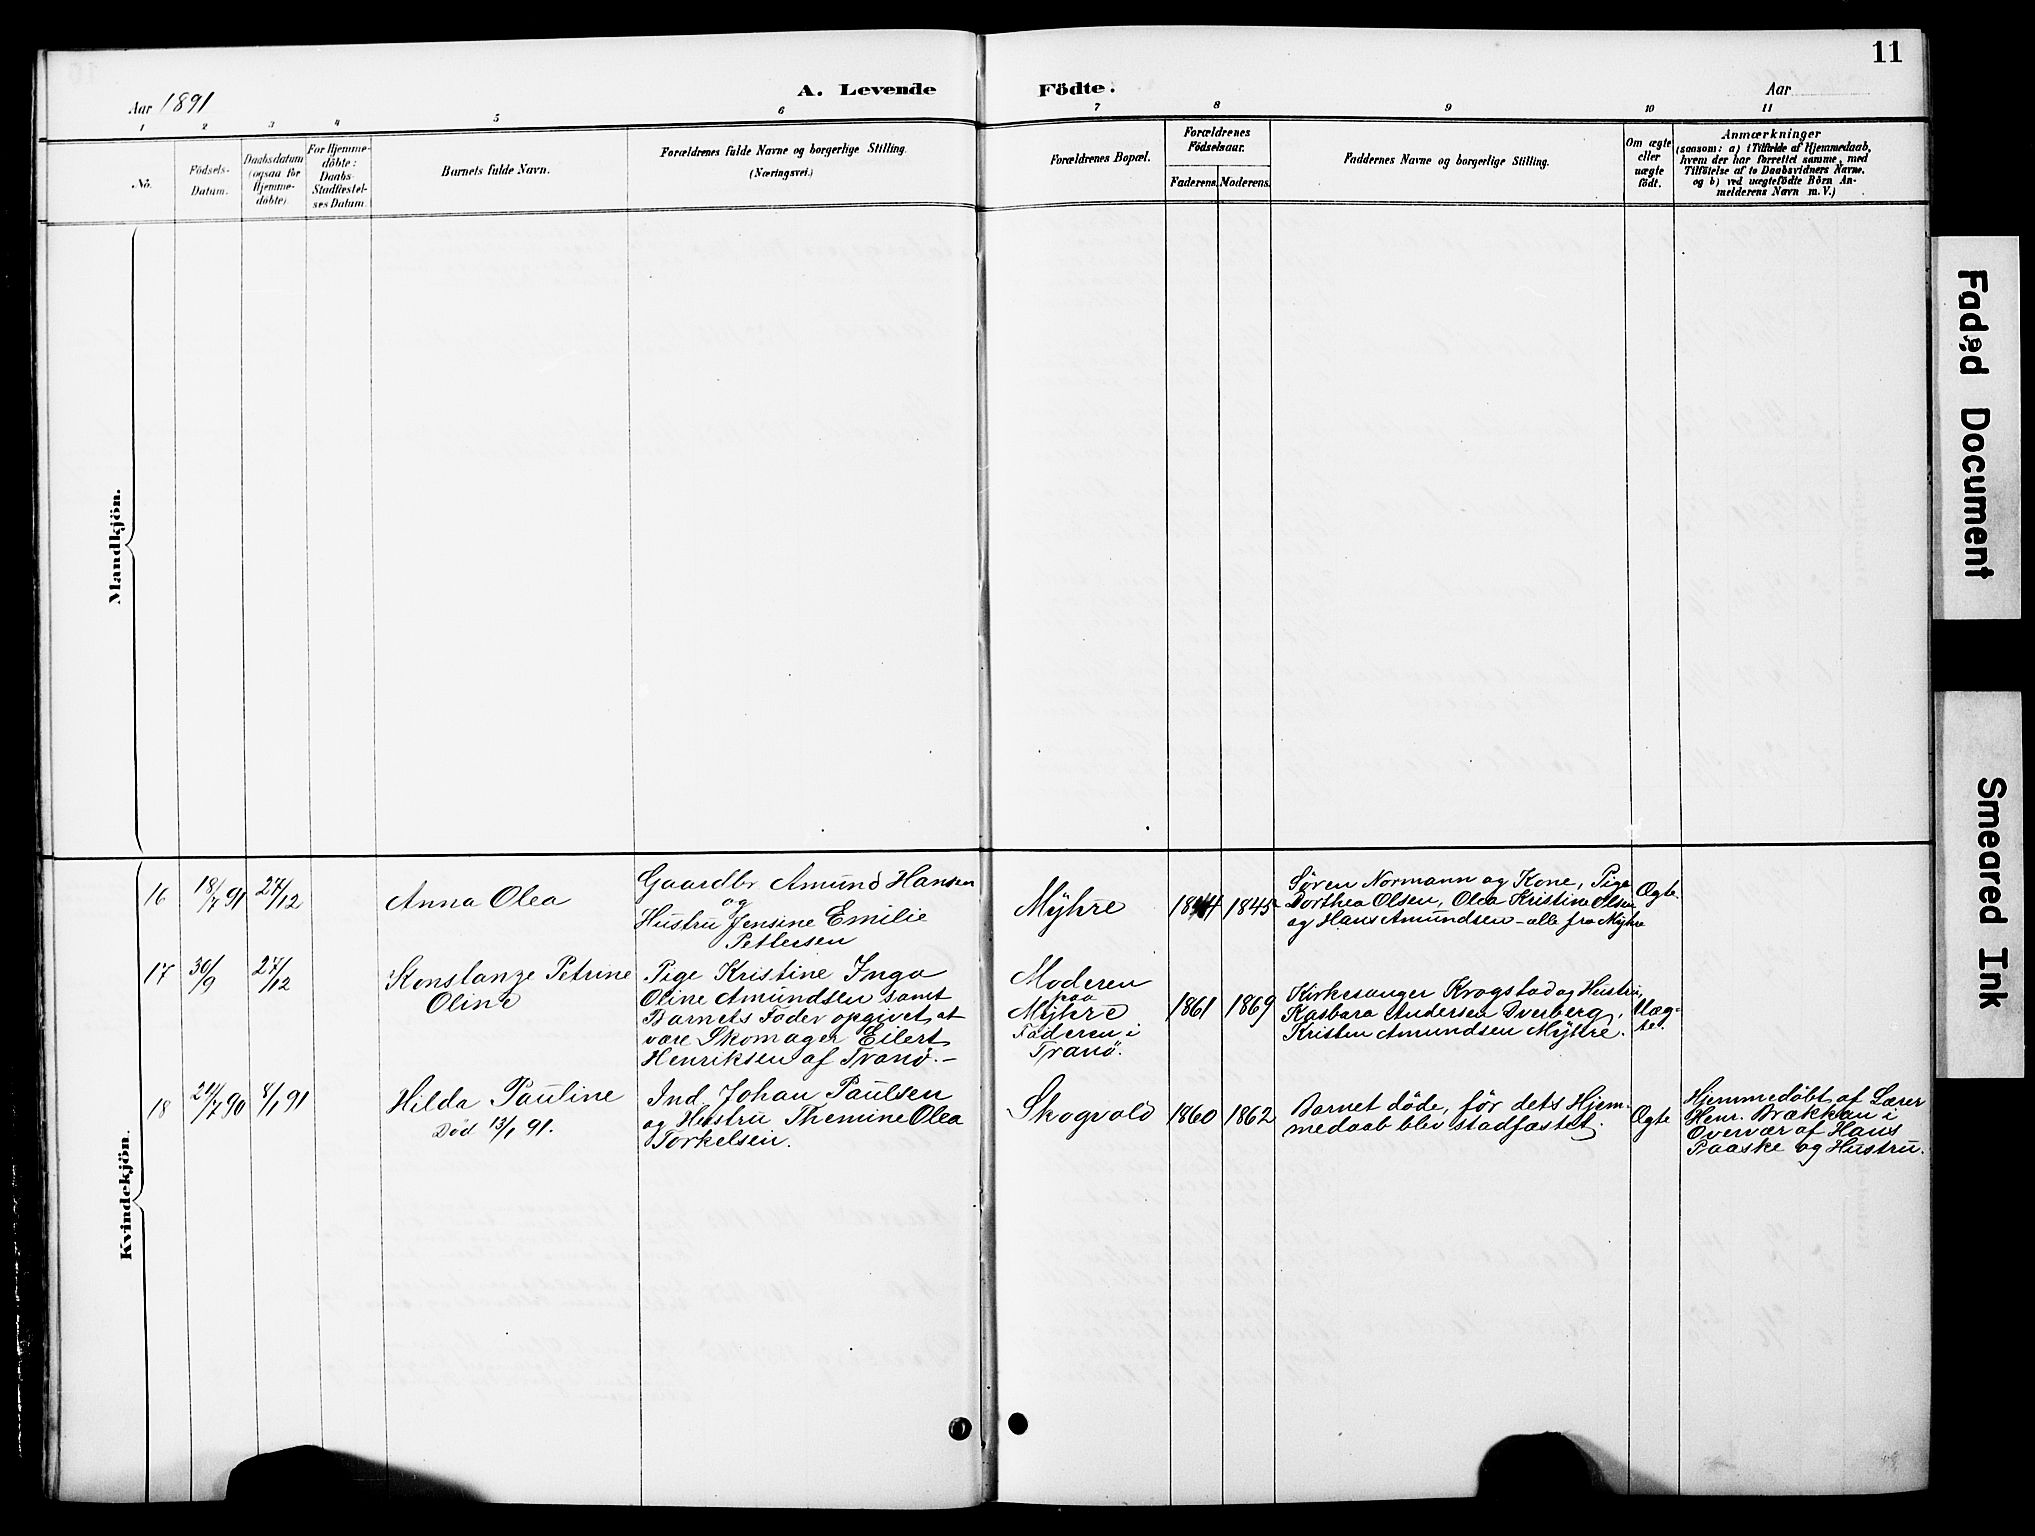 11
Aar 1891
A. Levende Födte.
Aar
1 2 3 4 5 6 7 8 9 10 11
No.
Födsels-
Datum.
Daabsdatum
(ogsaa for
Hjemme-
döbte).
For Hjemme-
döbte:
Daabs-
Stadfæstel-
ses Datum.
Barnets fulde Navn.
Forældrenes fulde Navne og borgerlige Stilling.
(Næringsvei.)
Forældrenes Bopæl.
Forældrenes
Födselsaar.
Faderens. Moderens.
Faddernes Navne og borgerlige Stilling.
Om ægte
eller
uægte
födt.
Anmærkninger
(saasom: a) i Tilfælde af Hjemmedaab,
hvem der har forrettet samme, med
Tilföielse af to Daabsvidners Navne,
og b) ved uægtefödte Börn An-
melderens Navn m. V.)
Mandkjön.
Kvindekjön.
16
18/7 91
27/12
Anna Olea
Gaardbr. Amund Hansen
og
Hustru Jensine Emilie
Pettersen
Myhre
1844 1845
Søren Normann og Kone, Pige
Dorthea Olsen, Olea Kristine Olsen
og Hans Amundsen – alle fra Myhre
Ægte
17
30/9
27/12
Konstanze Petrine
Oline
Pige Kristine Inga
Oline Amundsen samt
Barnets Fader opgivet at
være Skomager Eilert
Henriksen af Tranø. –
Moderen
paa
Myhre
Faderen i
Tranø.
1861 1869
Kirkesanger Krogstad og Hustru,
Kasbara Andersen Dverberg,
Kristen Amundsen Myhre.
Uæg-
te.
18
24/7 90
4/1 91
Hilda Pauline
Død 13/1 91.
Ind. Johan Paulsen
og Hustru Themine Olea
Torkelsen.
Skogvold
1860 1862
Barnet døde, før dets Hjem-
medaab blev stadfæstet.
Ægte
Hjemmedøbt af Lærer
Henr. Brækkan i
Overvær af Hans
Paaske og Hustru.
Faded Document
Smeared Ink